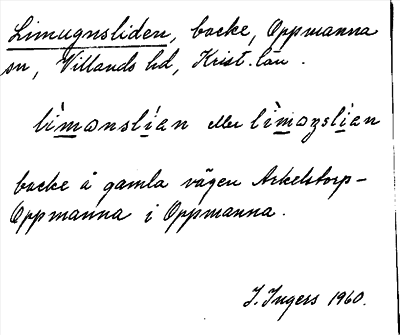 Limugnsliden, backe, Oppmanna
sn, Villands hd, Krist. län.
lìmanslían eller lìmaŋslían
backe å gamla vägen Arkelstorp-
Oppmanna i Oppmanna.
I. Ingers 1960.